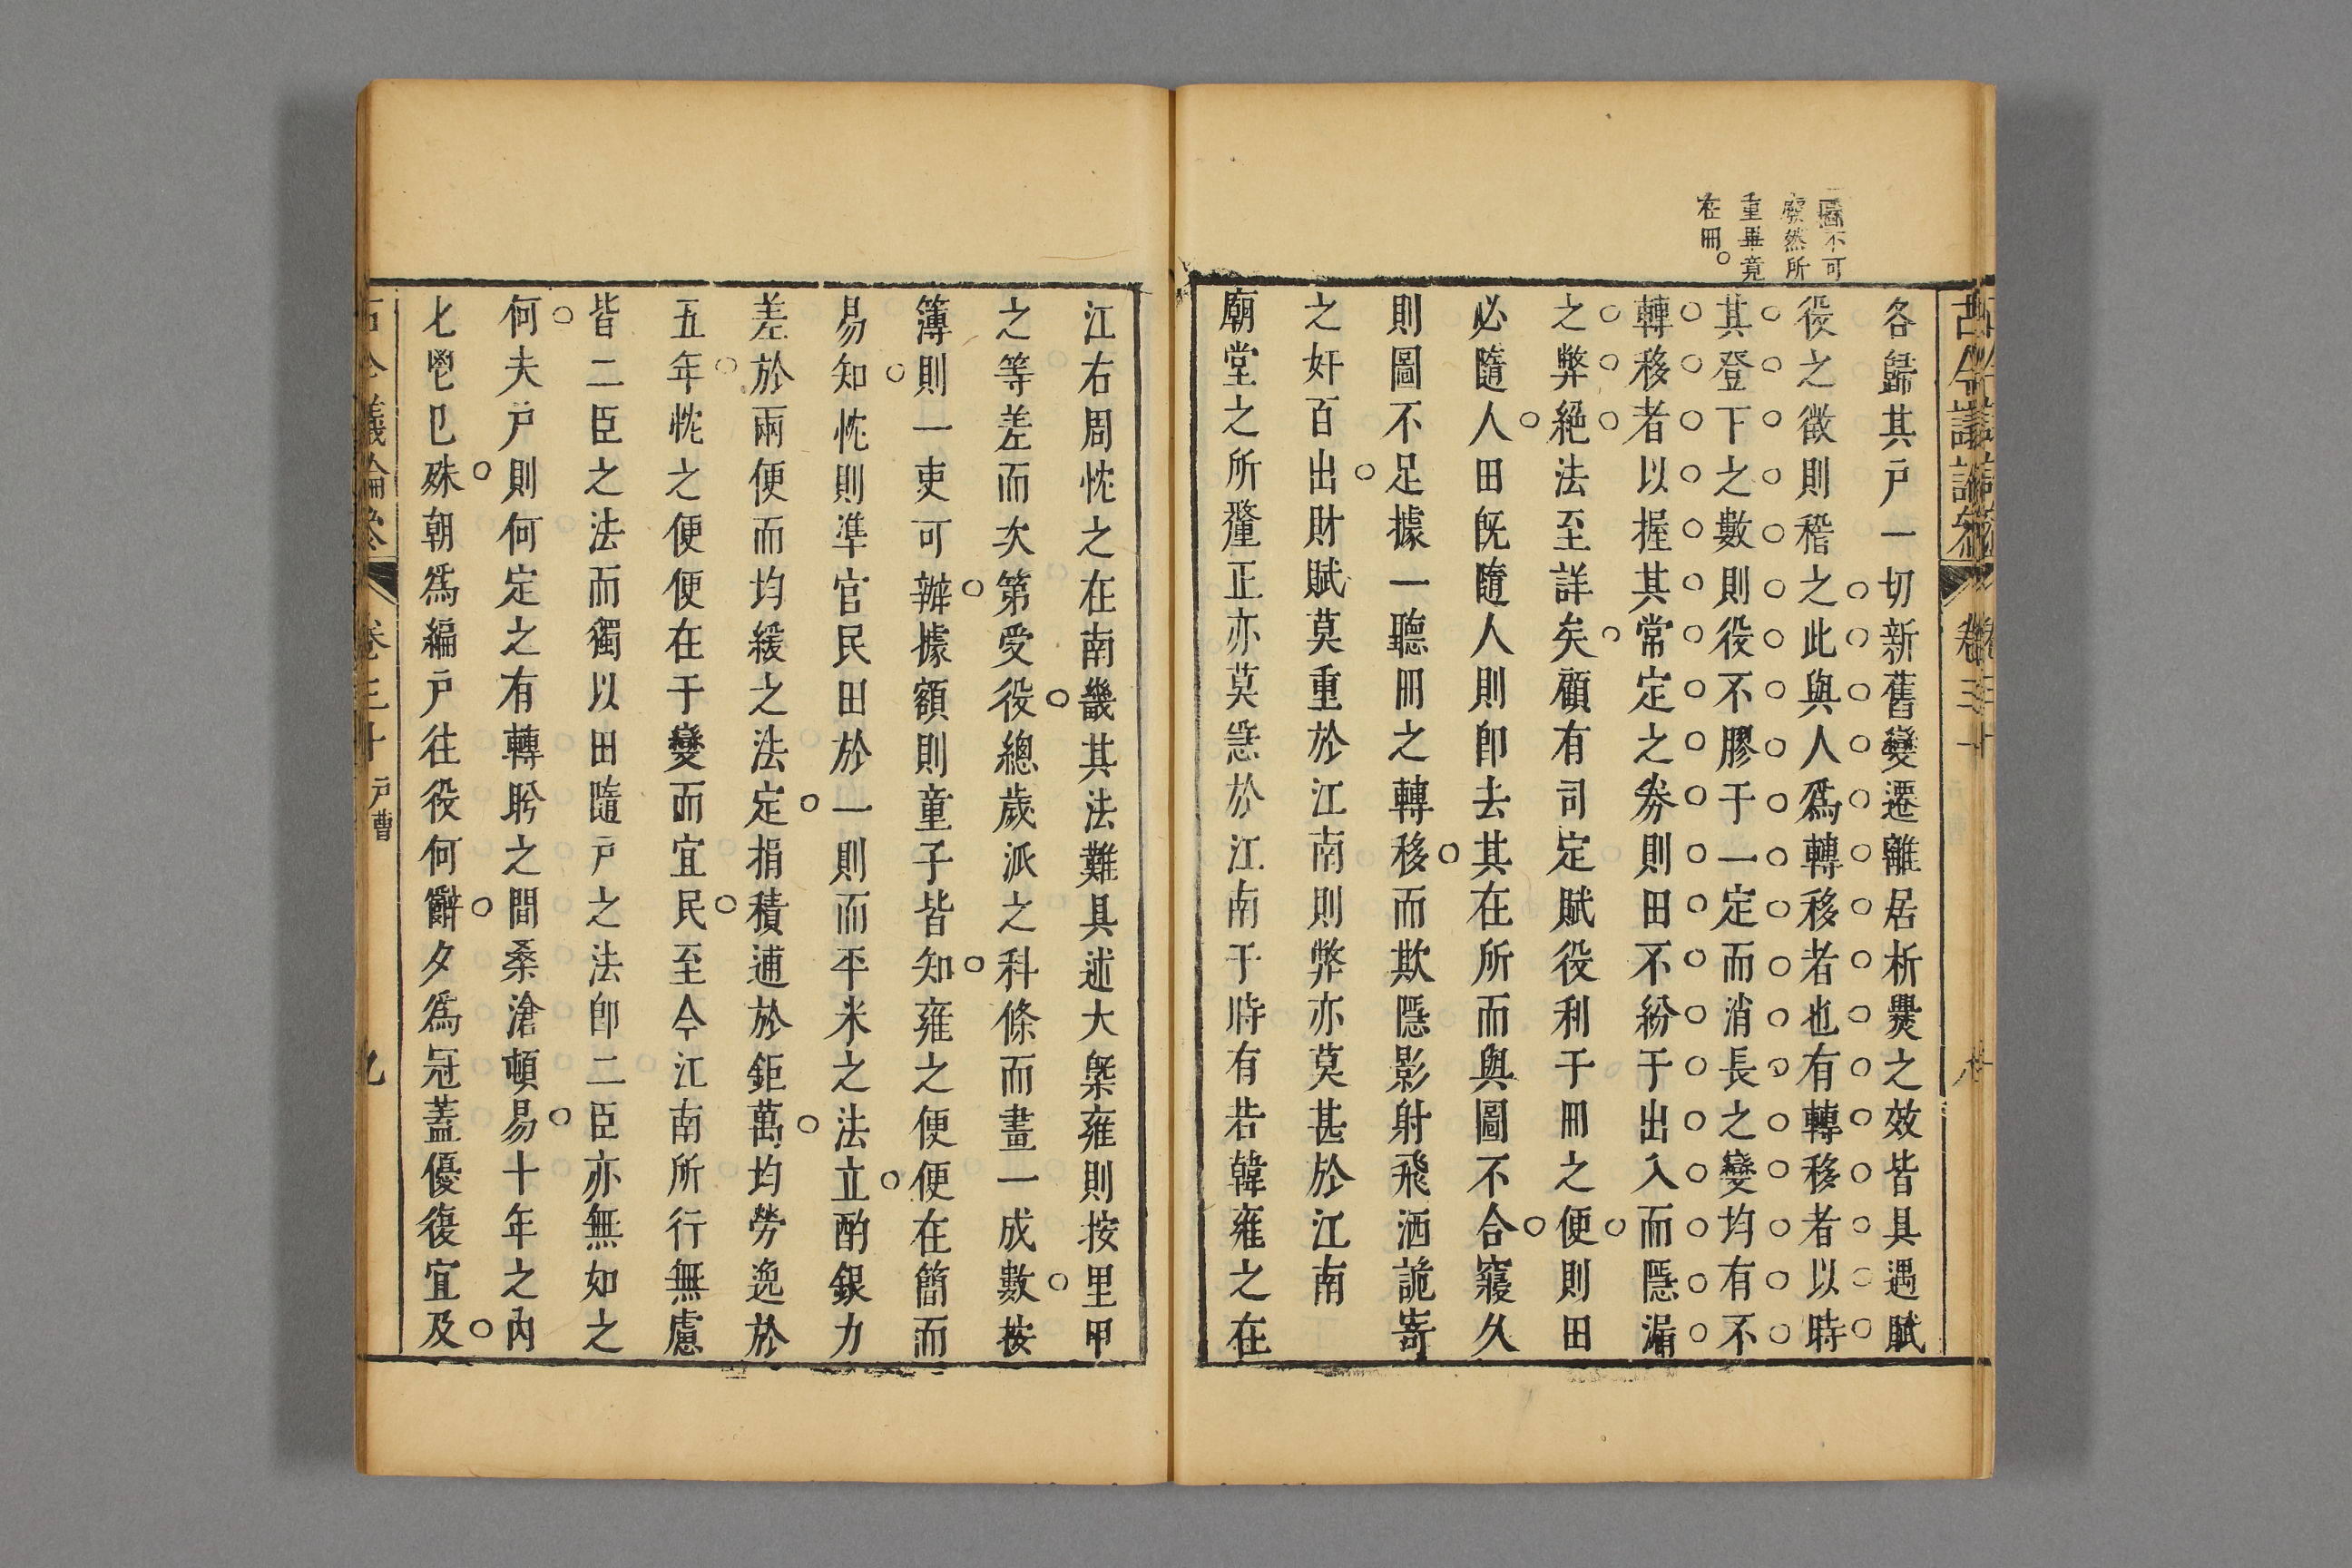 圖不可
廢然所
重畢竟
在冊。
各歸其戸一切新舊變遷離居析爨之效皆具遇賦
役之徵則稽之此與人爲轉移者也有轉移者以時
其登下之數則役不膠于一定而消長之變均有不
轉移者以握其常定之劵則田不紛于出入而隱漏
之弊絕法至詳矣顧有司定賦役利于冊之便則田
必隨人田旣隨人則卽去其在所而與圖不合寖久
則圖不足據一聽冊之轉移而欺隱影射飛洒詭寄
之奸百出財賦莫重於江南則弊亦莫甚於江南
廟堂之所釐正亦莫急於江南于時有若韓雍之在
江右周忱之在南畿其法難具述大槩雍則按里甲
之等差而次第受役總歲派之科條而畫一成數按
簿則一吏可辦據額則童子皆知雍之便便在簡而
易知忱則準官民田於一則而平米之法立酌銀力
差於兩便而均緩之法定捐積逋於鉅萬均勞逸於
五年忱之便便在于變而宜民至今江南所行無慮
皆二臣之法而獨以田隨戸之法卽二臣亦無如之
何夫戸則何定之有轉盻之間桑滄頓易十年之內
匕鬯已殊朝爲編戸徃役何辭夕爲冠蓋優復宜及
古今議論參
卷三十
戸曹
九